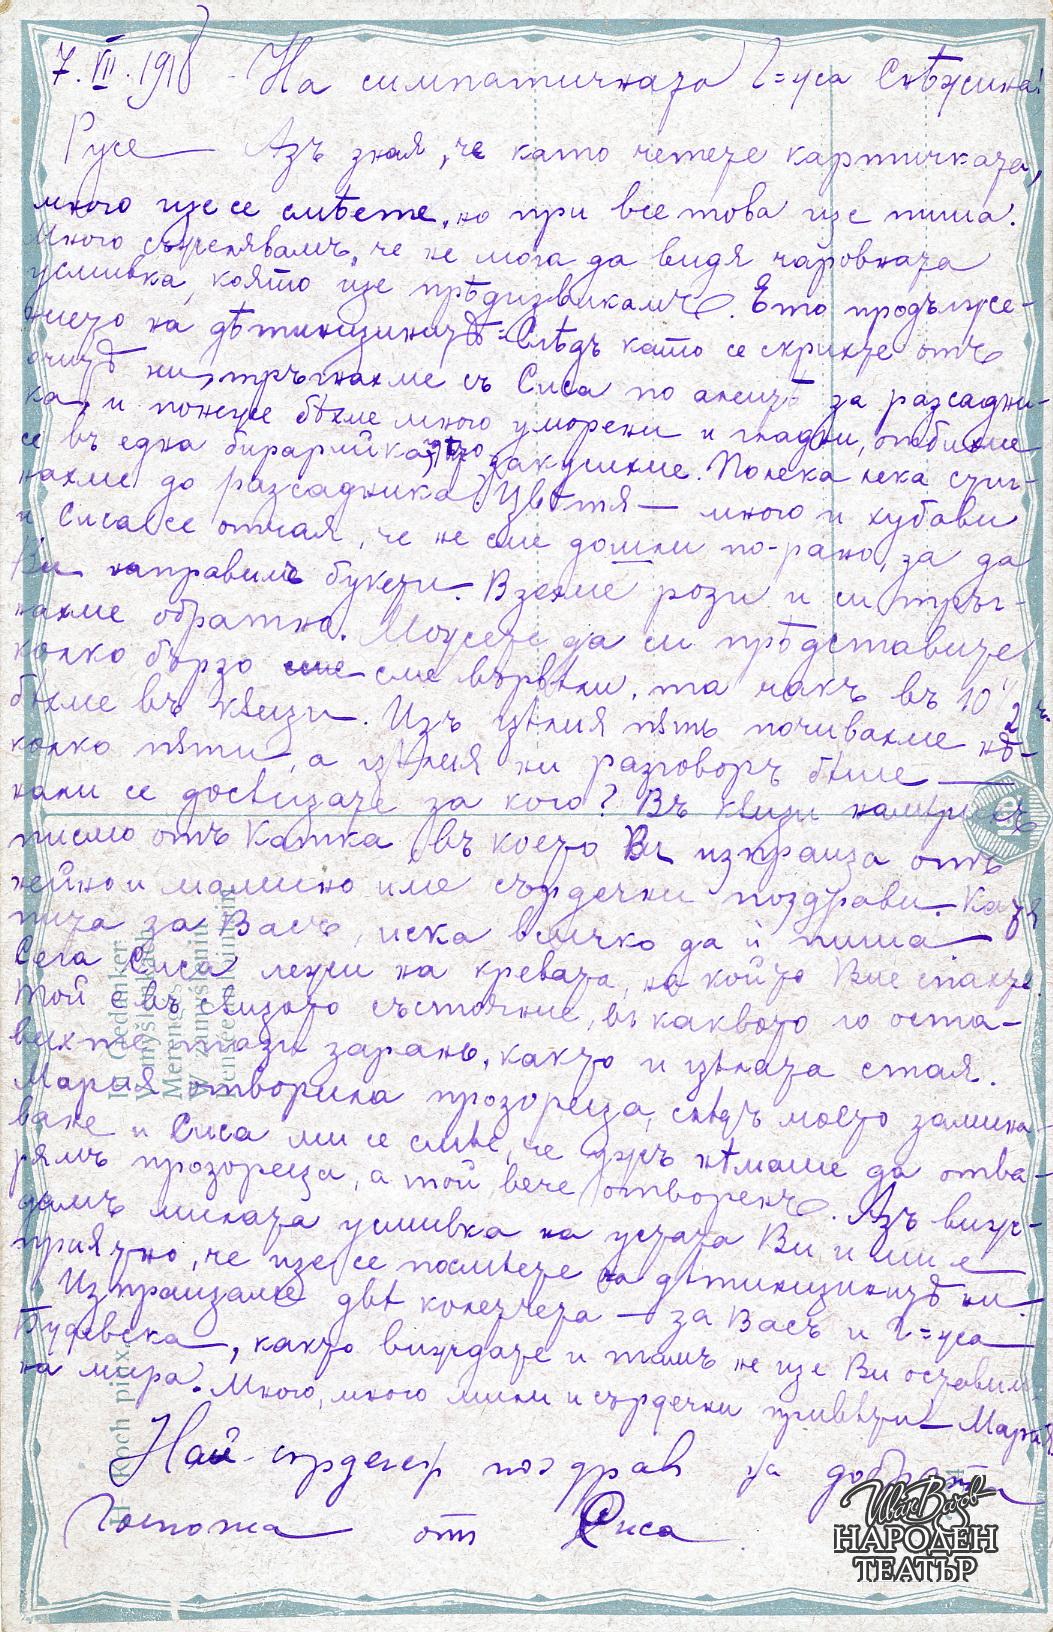 7.VII.1918 - На симпатичната Г-ца Снѣжина!
Русе — Азъ зная, че като четете картичката,
много ще се смѣете, но при все това ще пиша.
Много съжелявамъ, че не мога да видя чаровната
усмивка, която ще прѣдизвикамъ. Ето продълже-
нието на дѣтинщинитѣ: Слѣдъ като се скрихте отъ
очитѣ ни, тръгнахме съ Сиса по алеитѣ за разсадни-
ка, и понеже бѣхме много уморени и гладни, отбихме
се въ една бирарийка, закусихме. Полека лека стиг-
нахме до разсадника. Цвѣтя — много и хубави
и Сиса се отчая, че не сме дошли по-рано, за да
Ви направимъ букети. Взехме рози и си тръг-
нахме обратно. Можете да си прѣдставите
колко бързо сме вървѣли, та чакъ въ 10 1/2 ч.
бѣхме въ кѫщи. Изъ цѣлия пѫть почивахме нѣ-
колко пѫти, а цѣлия ни разговоръ бѣше —
нали се досѣщате за кого? Въ кѫщи намирамъ
писмо отъ Катка, въ което Ви изпраща отъ
нейно и мамино име сърдечни поздрави.
пита за Васъ, иска всичко да ѝ пиша —
Сега Сиса лежи на кревата, на който Вие спахте.
Той е въ сѫщото състояние, въ каквото го оста-
вихте тази зарань, както и цѣлата стая.
Мария отворила прозореца, слѣдъ моето замина-
ване и Сиса ми се смѣе, че ужъ нѣмаше да отва-
рямъ прозореца, а той вече отворенъ. Азъ виж-
дамъ милата усмивка на устата Ви и ми е
приятно, че ще се посмѣете на дѣтинщинитѣ ни.
Изпращаме двѣ колетчета — за Васъ и Г-ца
Будевска, както виждате и тамъ не ще Ви оставимъ
на мира. Много, много мили и сърдечни привѣти — Мария
Най-сърдечен поздрав на добрата
Госпожа от Сиса
H. Koch pinx.
Ивѫн Вазов
НАРОДЕН
ТЕАТЪР